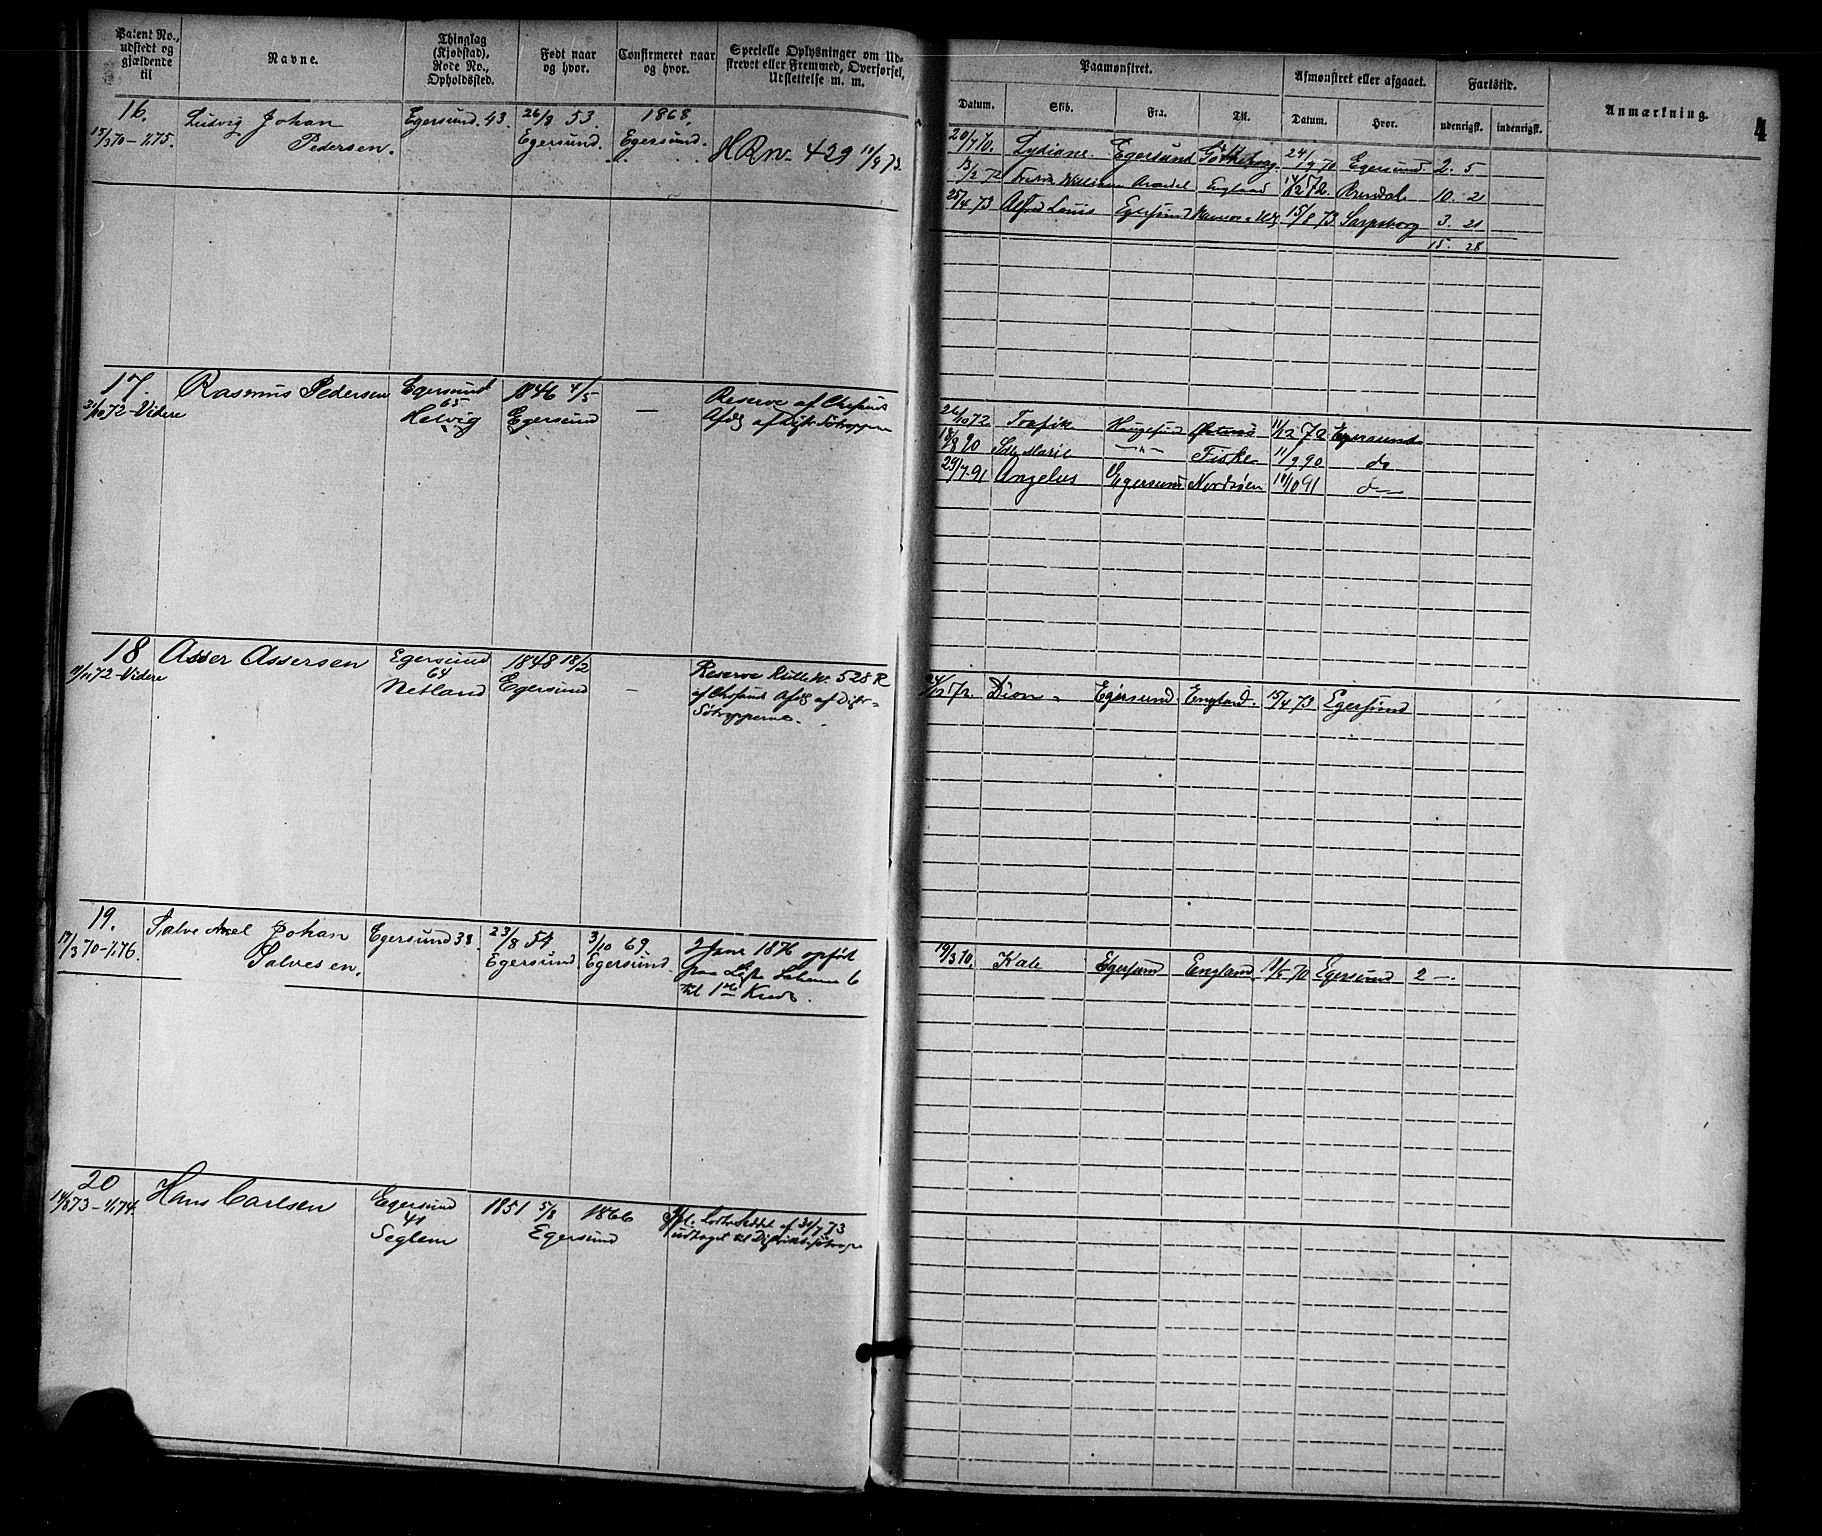 Patent No., udstedt og gjældende til
Navne.
Thinglag (Kjøbstad), Rode No., Opholdssted.
Født naar og hvor.
Confirmeret naar og hvor.
Specielle Oplysninger om Udstrevet eller Fremmed, Overførsel, Udslettelse m. m.
Paamønstret.
Afmønstret eller afgaaet.
Fartstid.
Anmærkning.
4
Datum.
Skib.
Fra.
Til.
Datum.
Hvor.
udenrigsk.
indenrigsk.
16.
15/3 70 - 1/1 75.
Ludvig Johan
Pedersen.
Egersund. 43.
26/8 53.
Egersund.
1868.
Egersund.
HRn. 429 11/9 73.
20/7 70. Lydiane. Egersund Gøtheborg. 24/9 70 Egersund 2. 5
13/2 72 William Arendal England 14/12 72. Arendal. 10. 2
25/4 73 Alfred Louis Egersund 15/8 73 Sarpsborg 3. 21
15. 28
17.
31/10 72 - Videre
Rasmus Pedersen
Egersund
65
Helvig
1846 4/5
Egersund
—
Reserve af
26/10 72. Trafik Haugesund 11/12 72 Egersund
18/8 90 Marie —"— Fiske 11/9 90 do
29/7 91 Angelus Egersund Nordsøen 10/10 91 do
18
11/11 72 - Videre
Asser Assersen
Egersund
64
Netland
1848 18/2
Egersund
—
Reserve Rulle No. 528 R
Søtropperne.
24/12 72. Dion Egersund England. 15/4 73 Egersund
19.
17/3 70 - 1/1 76.
Salve Axel Johan
Salvesen.
Egersund 38.
23/8 54
Egersund
3/10 69.
Egersund.
2 Janr 1876 opført
paa 6
til 1ste Kreds.
19/3 70. Kate Egersund England. 1/5 70 Egersund 2 —.
20
14/8 73 - 1/1 74.
Hans Carlsen
Egersund
41
Seglem
1851 5/8
Egersund
1866
af 31/7 73
udtaget til